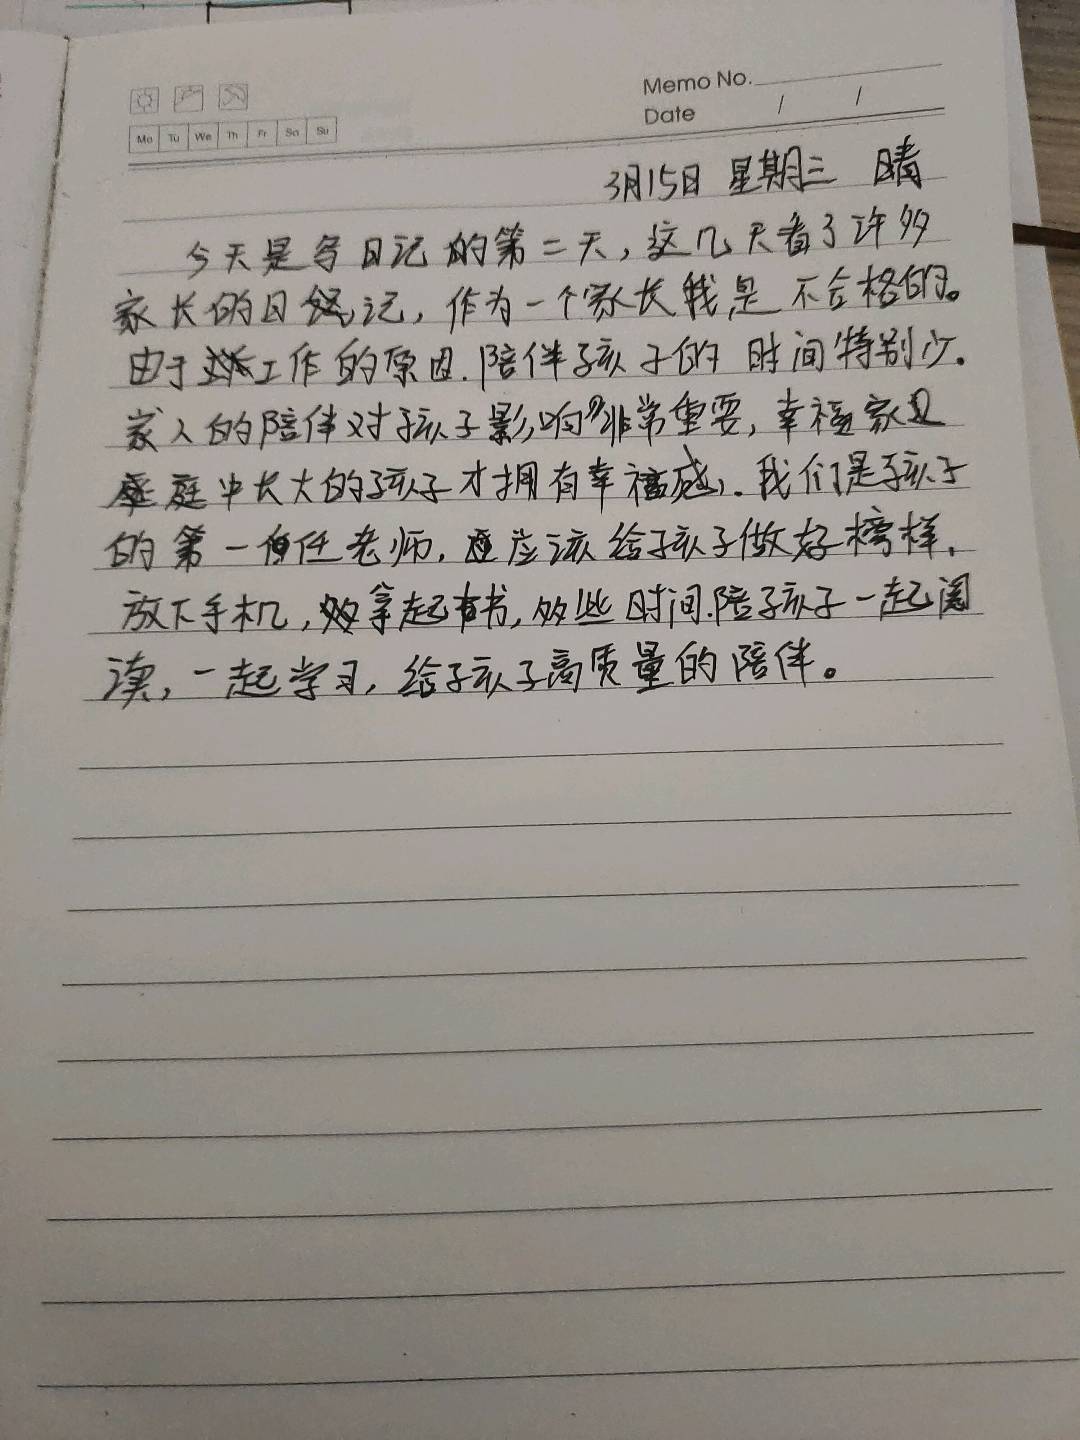 Memo No.
Date / /
Mo Tu We Th Fr Sa Su
3月15日 星期三 晴
今天是写日记的第二天,这几天看了许多
家长的日记,作为一个家长我是不合格的。
由于工作的原因.陪伴孩子的时间特别少.
家人的陪伴对孩子影响非常重要,幸福家
庭中长大的孩子才拥有幸福感.我们是孩子
的第一任老师,应该给孩子做好榜样.
放下手机,拿起书,多些时间.陪孩子一起阅
读,一起学习,给孩子高质量的陪伴。